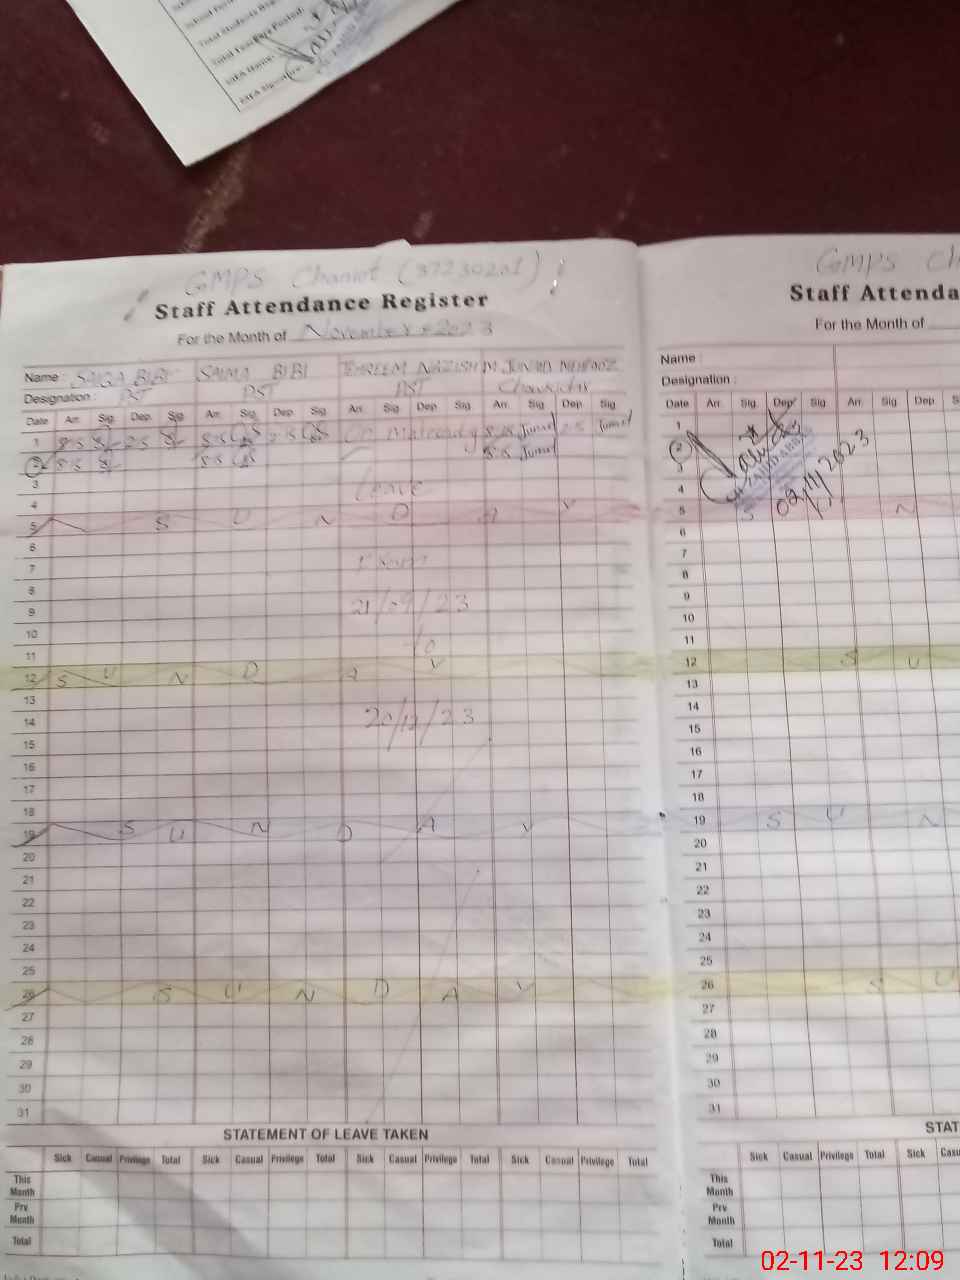 Total Students
Total Teachers Posted:
MEA Name:
MEA Signature:
GMPS Chaniot (37230201)
Staff Attendance Register
For the Month of November 2023
Name: SAIQA BIBI SAIMA BIBI TEHREEM NAZISH M. JUNAID MEHFOOZ
Designation: PST PST PST Chowkidar
Date Arr. Sig. Dep. Sig. Arr. Sig. Dep. Sig. Arr. Sig. Dep. Sig. Arr. Sig. Dep. Sig.
1 8:15 2:15 8:15 2:15 On Maternity 8:15 Junaid 2:15 Junaid
2 8:15 8:15 8:15 Junaid
3 Leave
4
5 S U N D A Y
6
7 From
8
9 21/09/23
10 To
11
12 S U N D A Y
13
14 20/12/23
15
16
17
18
19 S U N D A Y
20
21
22
23
24
25
26 S U N D A Y
27
28
29
30
31
STATEMENT OF LEAVE TAKEN
Sick Casual Privilege Total Sick Casual Privilege Total Sick Casual Privilege Total Sick Casual Privilege Total
This Month
Prv Month
Total
GMPS
Staff Attenda
For the Month of
Name:
Designation:
Date Arr. Sig. Dep. Sig. Arr. Sig. Dep
1
2
3
4
5 S N
02/11/2023
6
7
8
9
10
11
12 S U
13
14
15
16
17
18
19 S U N
20
21
22
23
24
25
26 S U
27
28
29
30
31
STAT
Sick Casual Privilege Total Sick Casu
This Month
Prv Month
Total
02-11-23 12:09